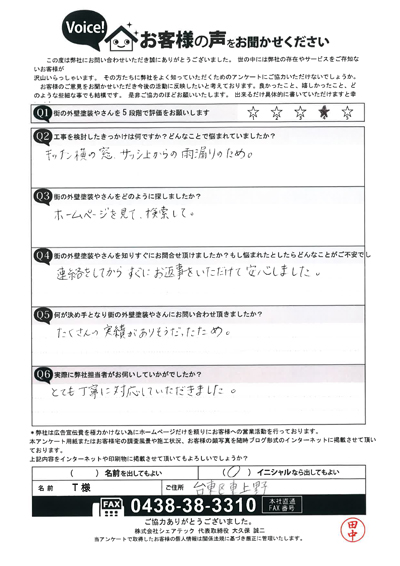 Voice!
お客様の声をお聞かせください
この度は弊社にお問い合わせいただき誠にありがとうございました。世の中には弊社の存在やサービスをご存知ないお客様が
沢山いらっしゃいます。その方たちに弊社をよく知っていただくためのアンケートにご協力いただけないでしょうか。
お客様のご意見をお聞かせいただき今後の活動に反映したいと考えております。良かったこと、嬉しかったこと、どのような些細な事でも結構です。是非ご協力のほどお願いいたします。出来るだけ具体的に書いていただけますと幸
Q1 街の外壁塗装やさんを5段階で評価をお願いします ☆ ☆ ☆ ★ ☆
Q2 工事を検討したきっかけは何ですか?どんなことで悩まれていましたか?
キッチン横の窓、サッシ上からの雨漏りのため。
Q3 街の外壁塗装やさんをどのように探しましたか?
ホームページを見て、検索して。
Q4 街の外壁塗装やさんを知りすぐにお問合せ頂けましたか?もし悩まれたとしたらどんなことがご不安でし
連絡をしてからすぐにお返事をいただけて安心しました。
Q5 何が決め手となり街の外壁塗装やさんにお問い合わせ頂きましたか?
たくさんの実績がありそうだったため。
Q6 実際に弊社担当者がお伺いしていかがでしたか?
とても丁寧に対応していただきました。
*弊社は広告宣伝費を極力かけない為にホームページだけを頼りにお客様への営業活動を行っております。
本アンケート用紙またはお客様宅の調査風景や施工状況、お客様の顔写真を随時ブログ形式のインターネットに掲載させて頂いております。
上記内容をインターネットや印刷物に掲載させて頂いてもよろしいでしょうか?
( ) 名前を出してもよい (○) イニシャルなら出してもよい
名前 T様 ご住所 台東区東上野
FAX 0438-38-3310 本社直通 FAX番号
ご協力ありがとうございました。
株式会社シェアテック 代表取締役 大久保 誠二
当アンケートで取得したお客様の個人情報は関係法規に基づき厳正に管理いたします。
田中